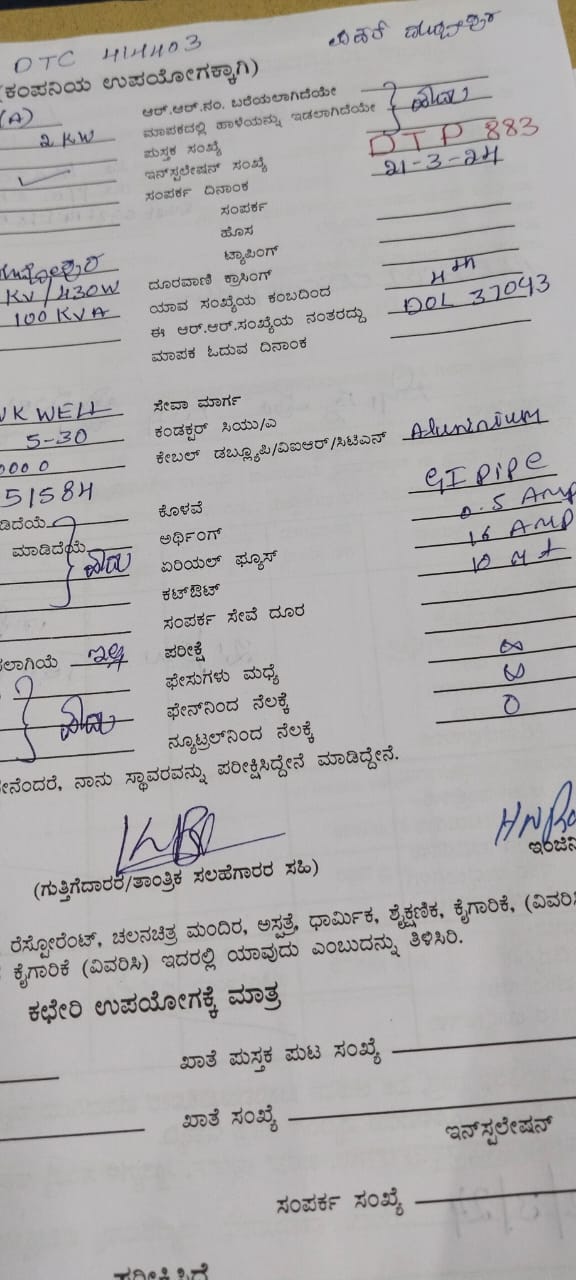 DTC 414403
(ಕಂಪನಿಯ ಉಪಯೋಗಕ್ಕಾಗಿ)
(A) ಆರ್.ಆರ್.ನಂ. ಬರೆಯಲಾಗಿದೆಯೇ
2 KW ಮಾಪಕದಲ್ಲಿ ಹಾಳೆಯನ್ನು ಇಡಲಾಗಿದೆಯೇ
ಪುಸ್ತಕ ಸಂಖ್ಯೆ DTP 883
ಇನ್‌ಸ್ಪಲೇಷನ್ ಸಂಖ್ಯೆ
ಸಂಪರ್ಕ ದಿನಾಂಕ 21-3-24
ಸಂಪರ್ಕ
ಹೊಸ
ಟ್ಯಾಪಿಂಗ್
KV/430W ದೂರವಾಣಿ ಕ್ರಾಸಿಂಗ್
100 KVA ಯಾವ ಸಂಖ್ಯೆಯ ಕಂಬದಿಂದ
ಈ ಆರ್.ಆರ್.ಸಂಖ್ಯೆಯ ನಂತರದ್ದು DOL 37043
ಮಾಪಕ ಓದುವ ದಿನಾಂಕ
WELL ಸೇವಾ ಮಾರ್ಗ
5-30 ಕಂಡಕ್ಟರ್ ಸಿಯು/ಎ
0000 ಕೇಬಲ್ ಡಬ್ಲ್ಯೂಪಿ/ವಿಐಆರ್/ಸಿಟಿಎನ್ Aluminium
51584 ಕೊಳವೆ GI PIPE
ಡಿದೆಯೆ ಅರ್ಥಿಂಗ್ 0.5 AMP
ಮಾಡಿದೆಯೆ ಏರಿಯಲ್ ಫ್ಯೂಸ್ 16 AMP
ಕಟ್‌ಔಟ್ 10 Mt
ಸಂಪರ್ಕ ಸೇವೆ ದೂರ
ಸಲಾಗಿಯೆ ಇಲ್ಲ ಪರೀಕ್ಷೆ
ಫೇಸುಗಳು ಮಧ್ಯೆ ∞
ಫೇನ್‌ನಿಂದ ನೆಲಕ್ಕೆ ∞
ನ್ಯೂಟ್ರಲ್‌ನಿಂದ ನೆಲಕ್ಕೆ 0
ನೇನೆಂದರೆ, ನಾನು ಸ್ಥಾವರವನ್ನು ಪರೀಕ್ಷಿಸಿದ್ದೇನೆ ಮಾಡಿದ್ದೇನೆ.
ಇಂಜಿನಿ
(ಗುತ್ತಿಗೆದಾರರ/ತಾಂತ್ರಿಕ ಸಲಹೆಗಾರರ ಸಹಿ)
ರೆಸ್ಪೋರೆಂಟ್, ಚಲನಚಿತ್ರ ಮಂದಿರ, ಅಸ್ಪತ್ರೆ, ಧಾರ್ಮಿಕ, ಶೈಕ್ಷಣಿಕ, ಕೈಗಾರಿಕೆ, (ವಿವರಿಸಿ
ಕೈಗಾರಿಕೆ (ವಿವರಿಸಿ) ಇದರಲ್ಲಿ ಯಾವುದು ಎಂಬುದನ್ನು ತಿಳಿಸಿರಿ.
ಕಛೇರಿ ಉಪಯೋಗಕ್ಕೆ ಮಾತ್ರ
ಖಾತೆ ಪುಸ್ತಕ ಪುಟ ಸಂಖ್ಯೆ
ಖಾತೆ ಸಂಖ್ಯೆ
ಇನ್‌ಸ್ಪಲೇಷನ್
ಸಂಪರ್ಕ ಸಂಖ್ಯೆ
ಪರೀಕ್ಷಿಸಿದೆ